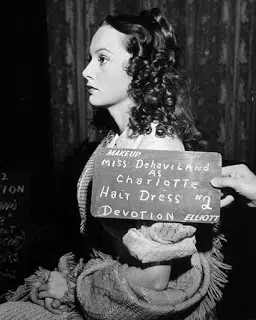 MAKEUP
MISS DEHAVILAND
AS
CHARLOTTE
HAIR DRESS #2
DEVOTION ELLIOTT